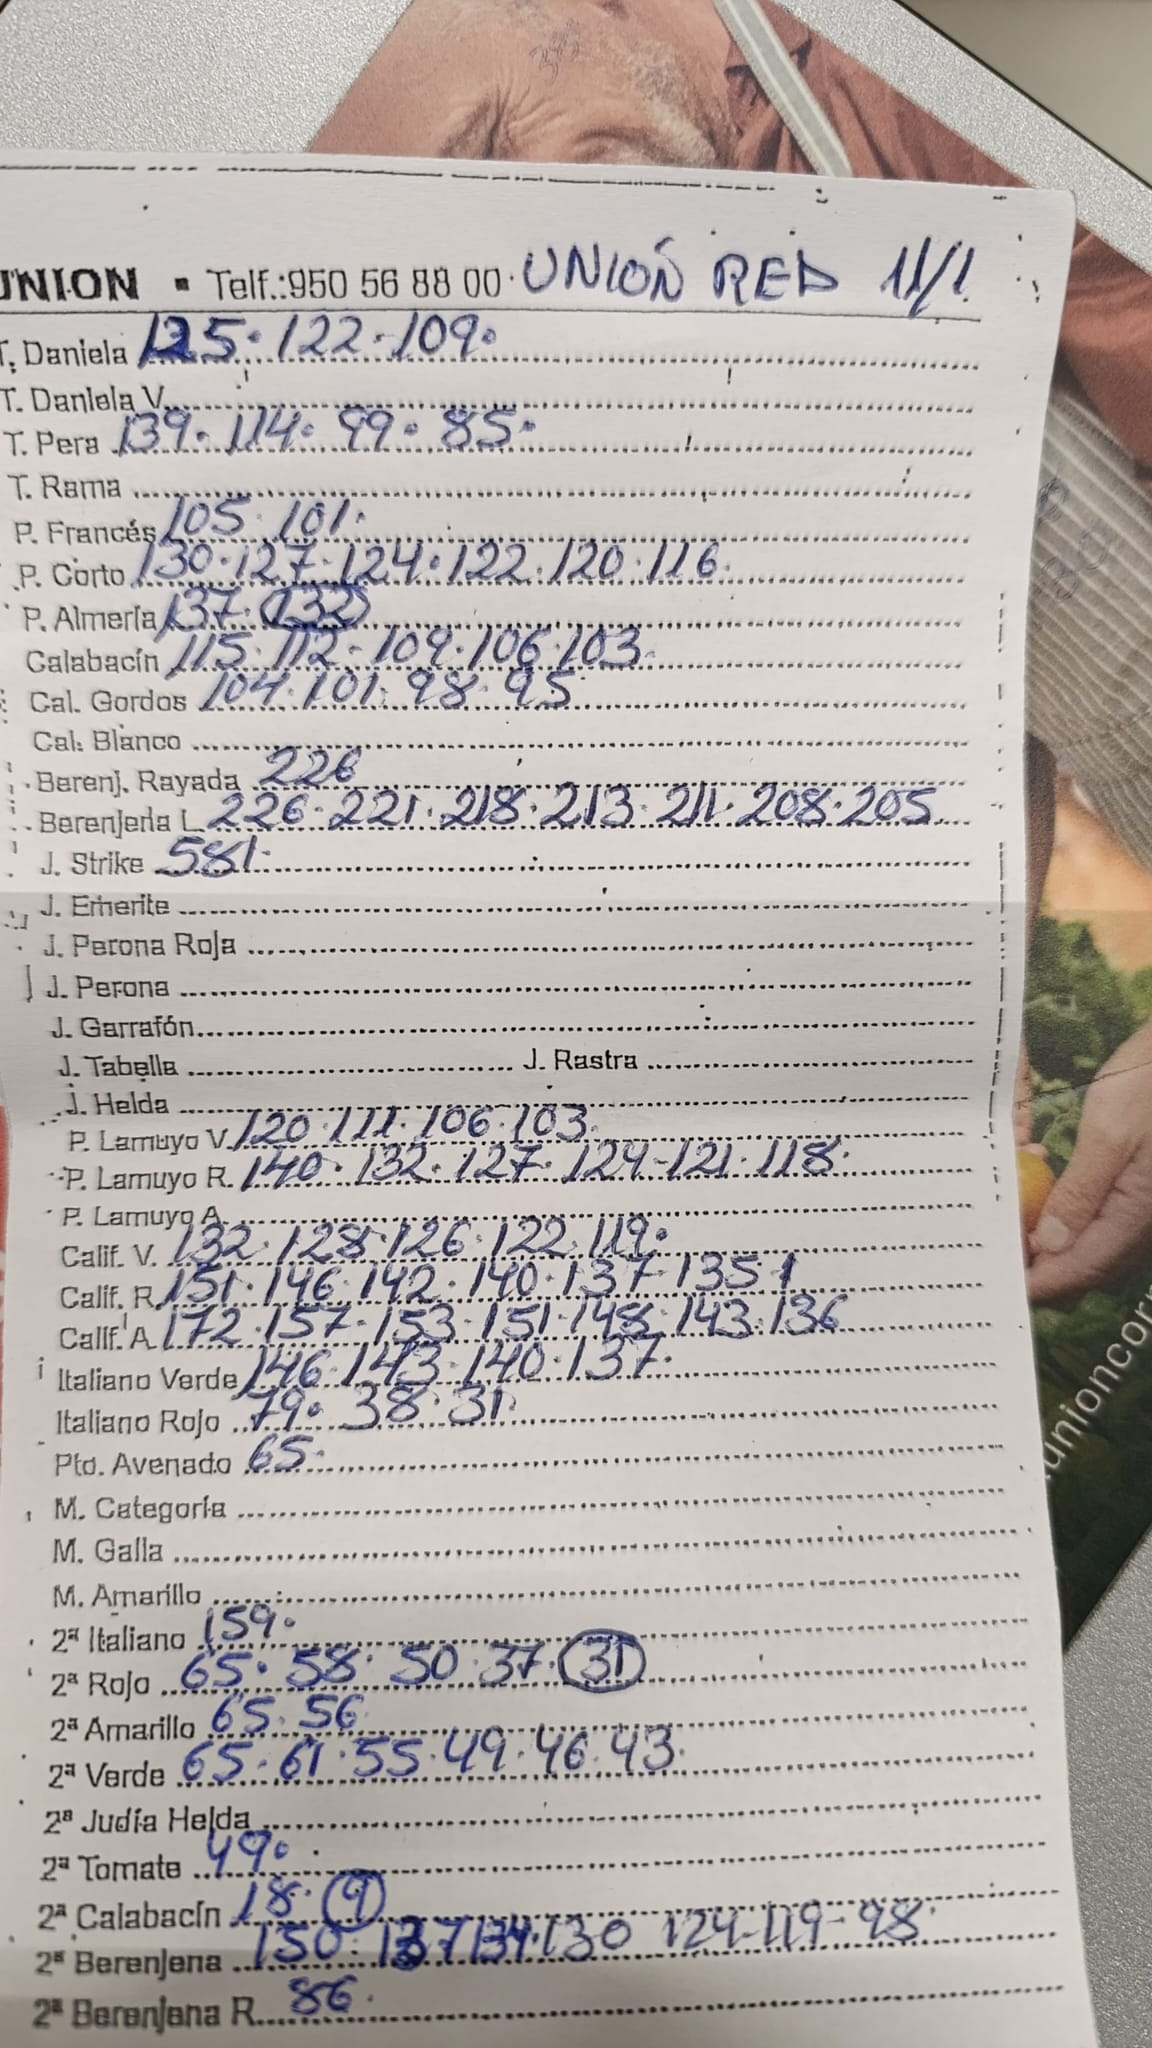 UNION ▪ Telf.:950 56 88 00. UNIÓN RED 11/1
T. Daniela 125. 122. 109.
T. Daniela V.
T. Pera 139. 114. 99. 85.
T. Rama
P. Francés 105. 101.
P. Corto 130. 127. 124. 122. 120. 116.
P. Almería 137. (132)
Calabacín 115. 112. 109. 106. 103.
Cal. Gordos 104. 101. 98. 95
Cal. Blanco
Berenj. Rayada 226
Berenjena L. 226. 221. 218. 213. 211. 208. 205.
J. Strike 581.
J. Emerite
J. Perona Roja
J. Perona
J. Garrafón
J. Tabella J. Rastra
J. Helda
P. Lamuyo V. 120. 111. 106. 103.
P. Lamuyo R. 140. 132. 127. 124-121. 118.
P. Lamuyo A.
Calif. V. 132. 128. 126. 122. 119.
Calif. R. 151. 146. 142. 140. 137. 135.
Calif. A. 172. 157. 153. 151. 148. 143. 136
Italiano Verde 146. 143. 140. 137.
Italiano Rojo 79. 38. 31.
Pto. Avenado 65.
M. Categoría
M. Galia
M. Amarillo
2ª Italiano 159.
2ª Rojo 65. 58. 50. 37. (31)
2ª Amarillo 65. 56.
2ª Verde 65. 61. 55. 49. 46. 43.
2ª Judía Helda
2ª Tomate 49.
2ª Calabacín 18. (9)
2ª Berenjena 150. 137 134. 130 124-119-98.
2ª Berenjena R. 86.